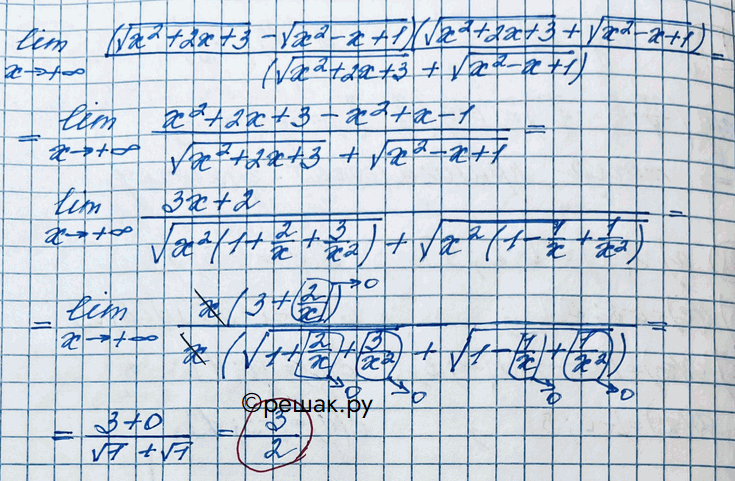 lim x→+∞ (√(x²+2x+3) − √(x²−x+1))(√(x²+2x+3) + √(x²−x+1)) / (√(x²+2x+3) + √(x²−x+1)) =
= lim x→+∞ (x²+2x+3−x²+x−1) / (√(x²+2x+3) + √(x²−x+1)) =
lim x→+∞ (3x+2) / (√(x²(1+2/x+3/x²)) + √(x²(1−1/x+1/x²))) =
= lim x→+∞ x(3+2/x)→0 / x(√(1+2/x+3/x²) + √(1−1/x+1/x²)) =
→0 →0 →0 →0
©решак.ру
= (3+0) / (√1+√1) = 3/2